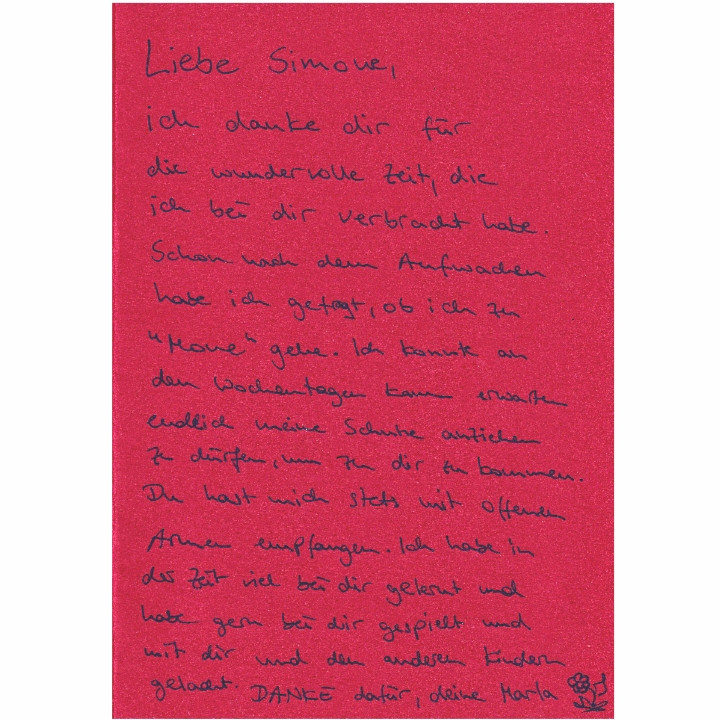 Liebe Simone,
ich danke dir für
die wundervolle Zeit, die
ich bei dir verbracht habe.
Schon nach dem Aufwachen
habe ich gefragt, ob ich zu
"Mone" gehe. Ich konnte an
den Wochentagen kaum erwarten
endlich meine Schuhe anziehen
zu dürfen, um zu dir zu kommen.
Du hast mich stets mit offenen
Armen empfangen. Ich habe in
der Zeit viel bei dir gelernt und
habe gern bei dir gespielt und
mit dir und den anderen Kindern
gelacht. DANKE dafür, deine Marla